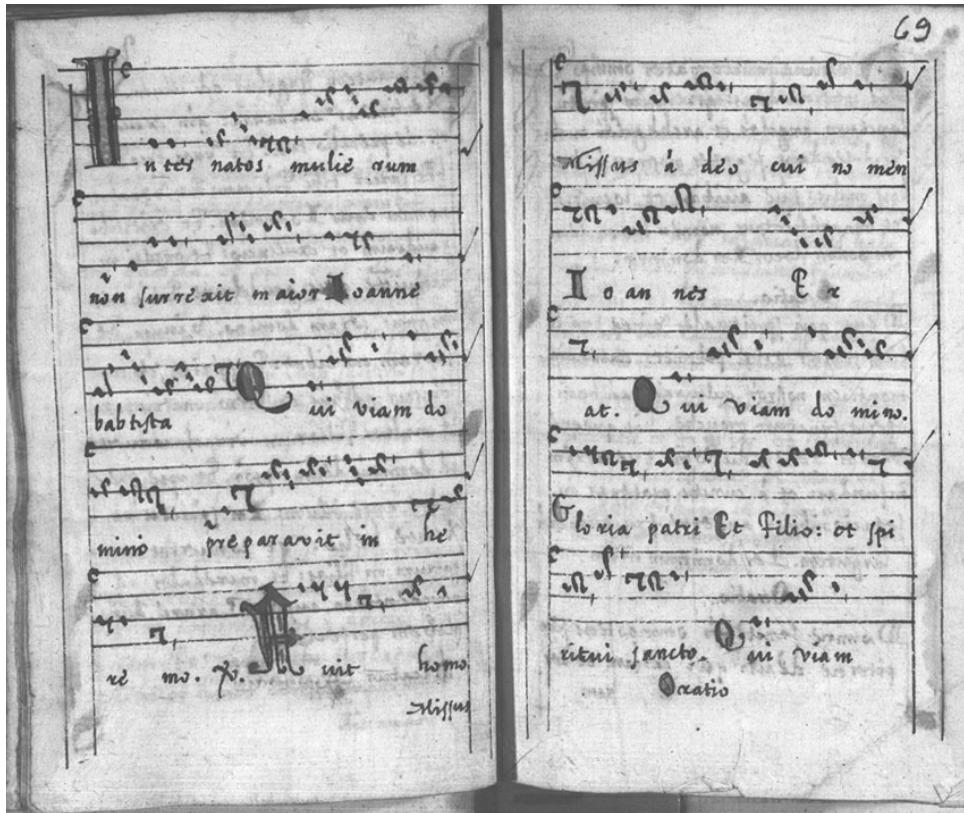 Intes natos mulie rum
non surrexit maior Ioanne
babtista Qui viam do
mino preparavit in he
re mo. ꝟ. Fuit homo
Missus
69
Missus á deo cui no men
I o an nes E r
at. Qui viam do mino.
Gloria patri Et Filio: et spi
ritui sancto. Qui viam
Oratio